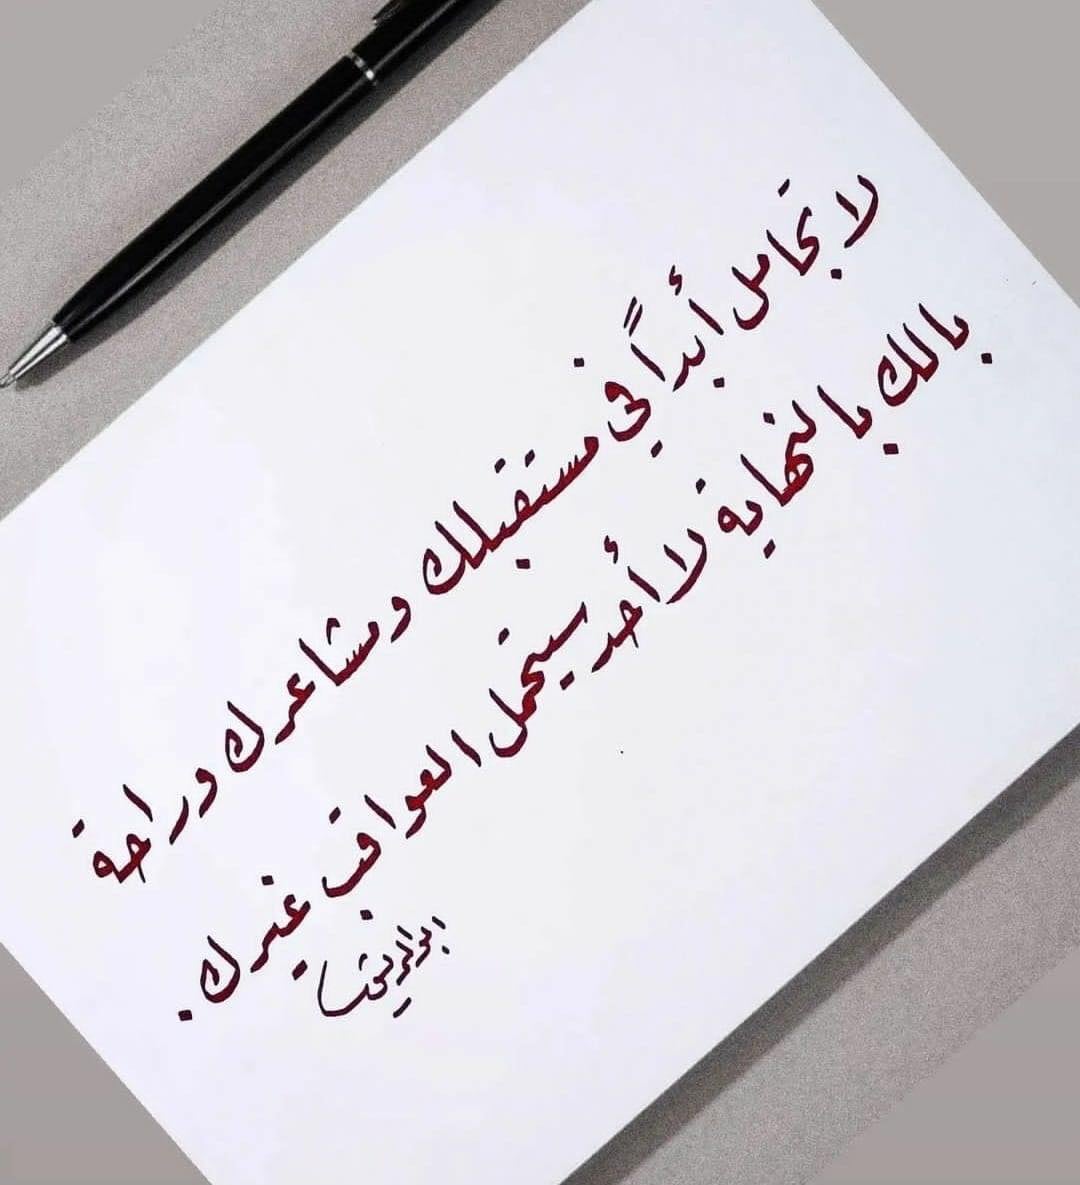 لا تجامل أبداً في مستقبلك ومشاعرك وراحة
بالك بالنهاية لا أحد سيتحمل العواقب غيرك.